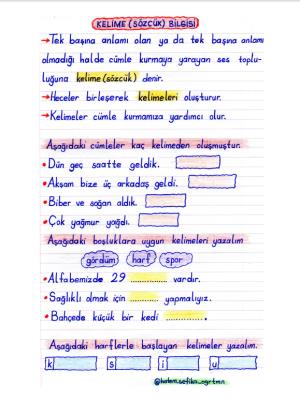 KELİME (SÖZCÜK) BİLGİSİ
→Tek başına anlamı olan ya da tek başına anlamı
olmadığı halde cümle kurmaya yarayan ses toplu-
luğuna kelime (sözcük) denir.
→Heceler birleşerek kelimeleri oluşturur.
→Kelimeler cümle kurmamıza yardımcı olur.
Aşağıdaki cümleler kaç kelimeden oluşmuştur.
• Dün geç saatte geldik.
• Akşam bize üç arkadaş geldi.
• Biber ve soğan aldık.
• Çok yağmur yağdı.
Aşağıdaki boşluklara uygun kelimeleri yazalım
gördüm harf spor
• Alfabemizde 29 .............. vardır.
• Sağlıklı olmak için .......... yapmalıyız.
• Bahçede küçük bir kedi ..............
Aşağıdaki harflerle başlayan kelimeler yazalım.
k s i u
@hatem.sefika_ogrtmn